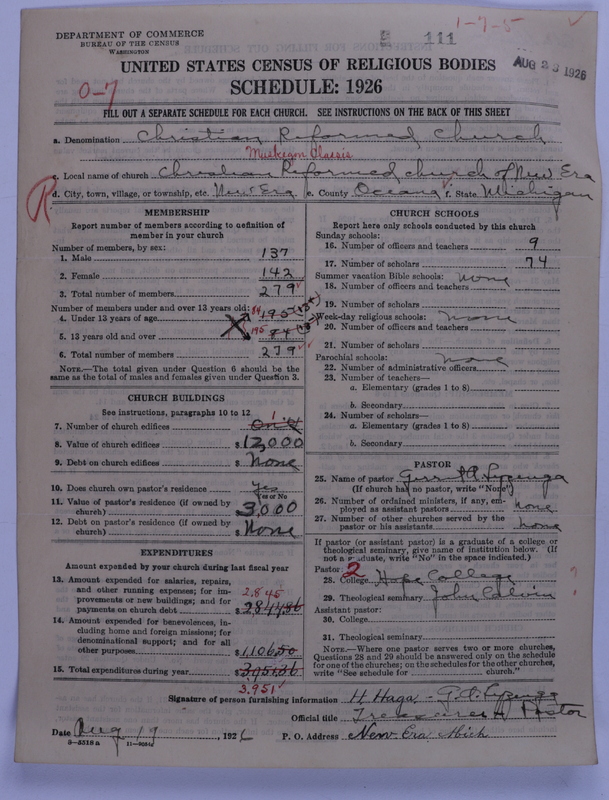 DEPARTMENT OF COMMERCE
BUREAU OF THE CENSUS
WASHINGTON
111
1-7-5
AUG 23 1926
UNITED STATES CENSUS OF RELIGIOUS BODIES
SCHEDULE: 1926
0-7
FILL OUT A SEPARATE SCHEDULE FOR EACH CHURCH. SEE INSTRUCTIONS ON THE BACK OF THIS SHEET
a. Denomination Christian Reformed Church
Muskegon Classis
c. Local name of church Christian Reformed church of New Era
d. City, town, village, or township, etc. New Era e. County Oceana f. State Michigan
R
MEMBERSHIP
Report number of members according to definition of
member in your church
Number of members, by sex:
1. Male 137
2. Female 142
3. Total number of members 279
Number of members under and over 13 years old:
4. Under 13 years of age 84 195
5. 13 years old and over 195 84
6. Total number of members 279
NOTE.—The total given under Question 6 should be
same as the total of males and females given under Question 3.
CHURCH BUILDINGS
See instructions, paragraphs 10 to 12
7. Number of church edifices 1
8. Value of church edifices $12,000
9. Debt on church edifices $ None
10. Does church own pastor's residence Yes
Yes or No
11. Value of pastor's residence (if owned by
church) $3,000
12. Debt on pastor's residence (if owned by
church) $ None
EXPENDITURES
Amount expended by your church during last fiscal year
13. Amount expended for salaries, repairs,
and other running expenses; for im-
provements or new buildings; and for
payments on church debt 2,845 $2844.86
14. Amount expended for benevolences, in-
cluding home and foreign missions; for
denominational support; and for all
other purposes $1,106.50
15. Total expenditures during year $3,951.36
3,951
CHURCH SCHOOLS
Report here only schools conducted by this church
Sunday schools:
16. Number of officers and teachers 9
17. Number of scholars 74
Summer vacation Bible schools: none
18. Number of officers and teachers
19. Number of scholars
Week-day religious schools: none
20. Number of officers and teachers
21. Number of scholars
Parochial schools: none
22. Number of administrative officers
23. Number of teachers—
a. Elementary (grades 1 to 8)
b. Secondary
24. Number of scholars—
a. Elementary (grades 1 to 8)
b. Secondary
PASTOR
25. Name of pastor
(If church has no pastor, write "None")
26. Number of ordained ministers, if any, em-
ployed as assistant pastors none
27. Number of other churches served by the
pastor or his assistants none
If pastor (or assistant pastor) is a graduate of a college or
theological seminary, give name of institution below. (If
not a graduate, write "No" in the space indicated.)
Pastor: 2
28. College Hope College ?
29. Theological seminary John Calvin
Assistant pastor:
30. College
31. Theological seminary
NOTE.—Where one pastor serves two or more churches,
Questions 28 and 29 should be answered only on the schedule
for one of the churches; on the schedules for the other churches,
write "See schedule for church."
Signature of person furnishing information H. Haga
Official title Treasurer Pastor
Date Aug 19, 1926 P. O. Address New Era Mich
8-5318 a